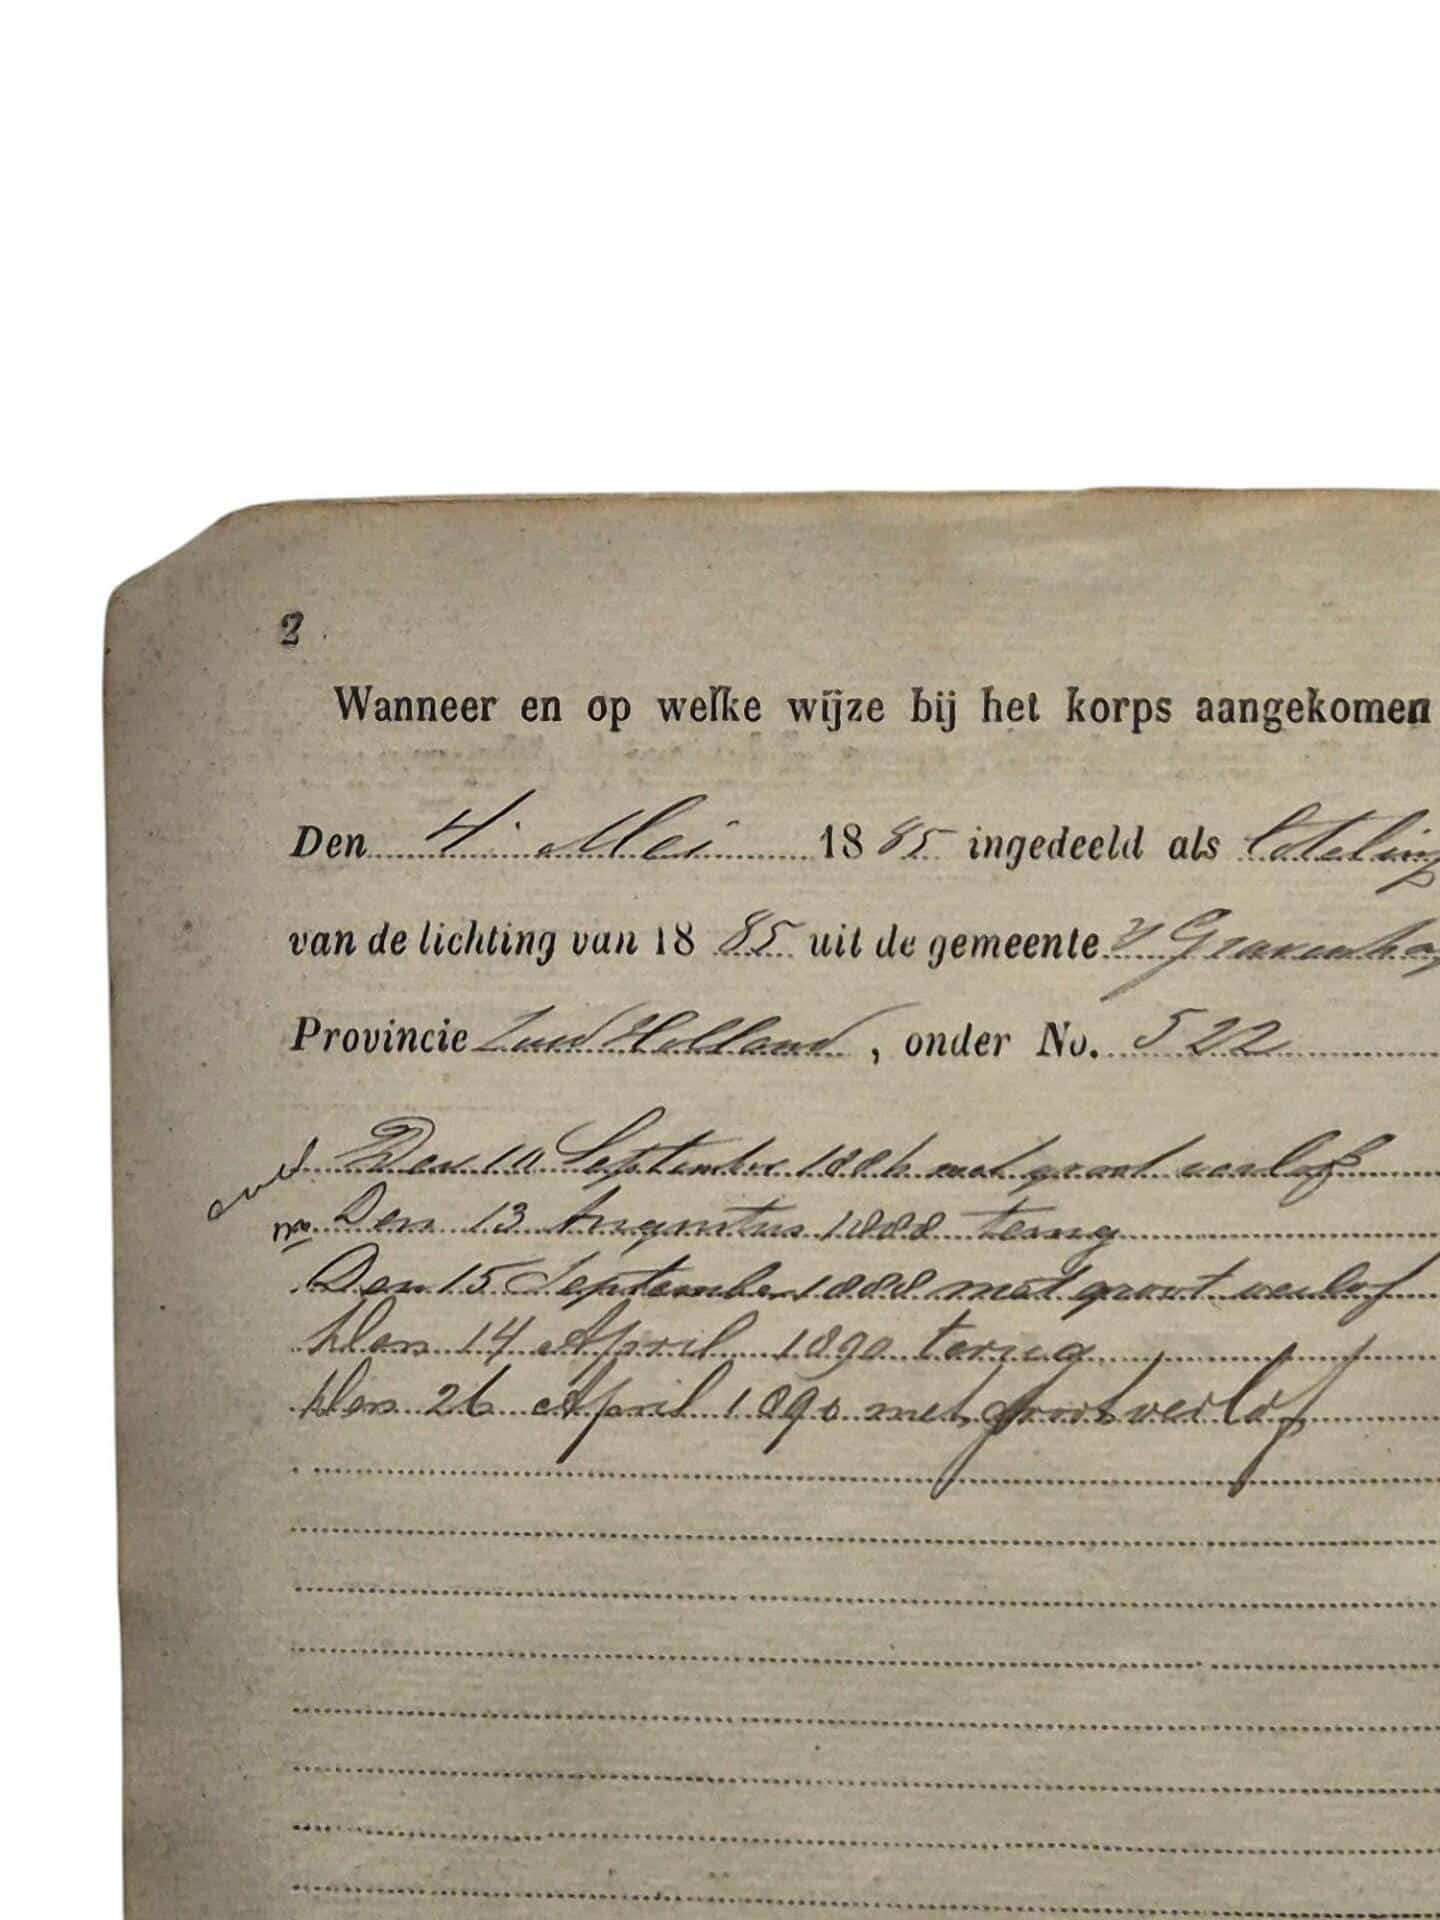 2
Wanneer en op welke wijze bij het korps aangekomen
Den 4 Mei 1885 ingedeeld als loteling
van de lichting van 1885 uit de gemeente 's Gravenhag
Provincie Zuid Holland, onder No. 522
Den 10 September 1886 met groot verlof
Den 13 Augustus 1888 terug
Den 15 September 1888 met groot verlof
Den 14 April 1890 terug
Den 26 April 1890 met groot verlof